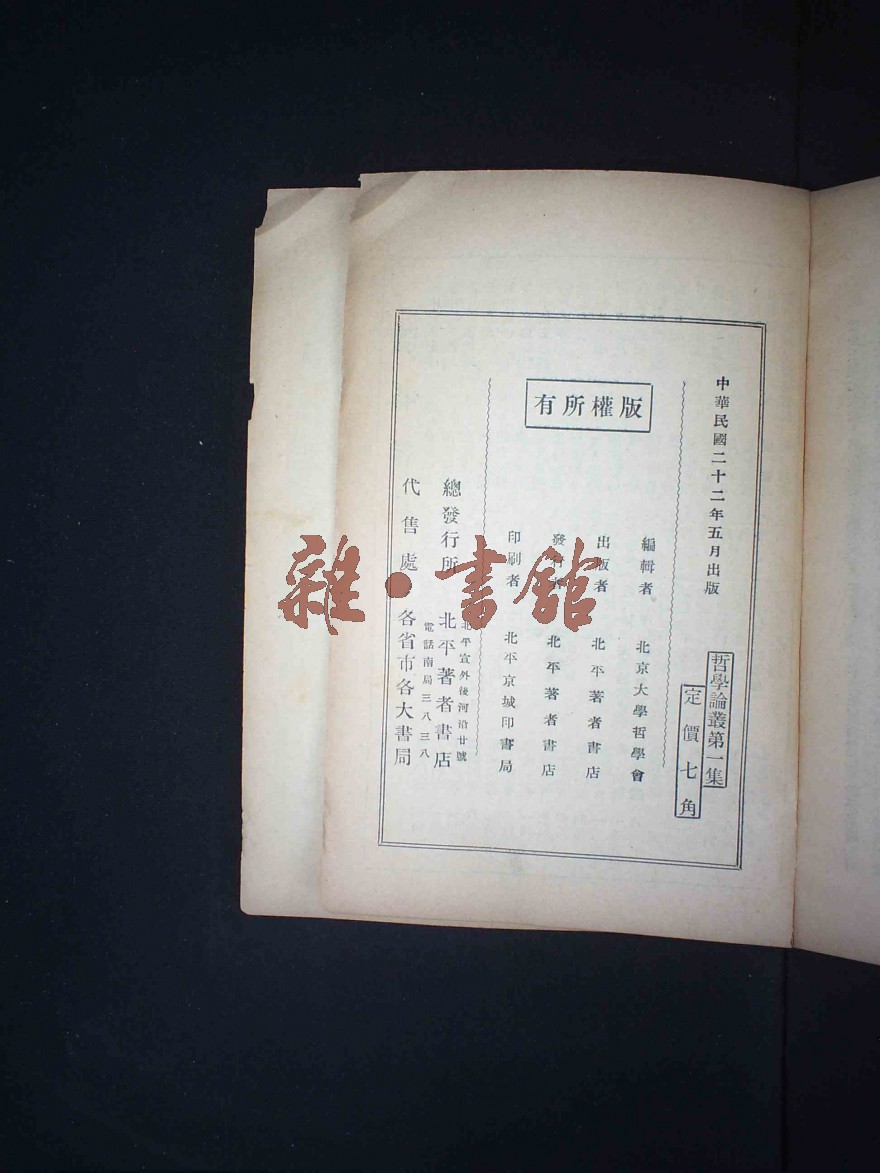 中華民國二十二年五月出版
哲學論叢第一集
定價七角
版權所有
編輯者 北京大學哲學會
出版者 北平著者書店
發行者 北平著者書店
印刷者 北平京城印書局
總發行所 北平著者書店
北平宣外後河沿廿號
電話南局三八三八
代售處 各省市各大書局
雜·書館